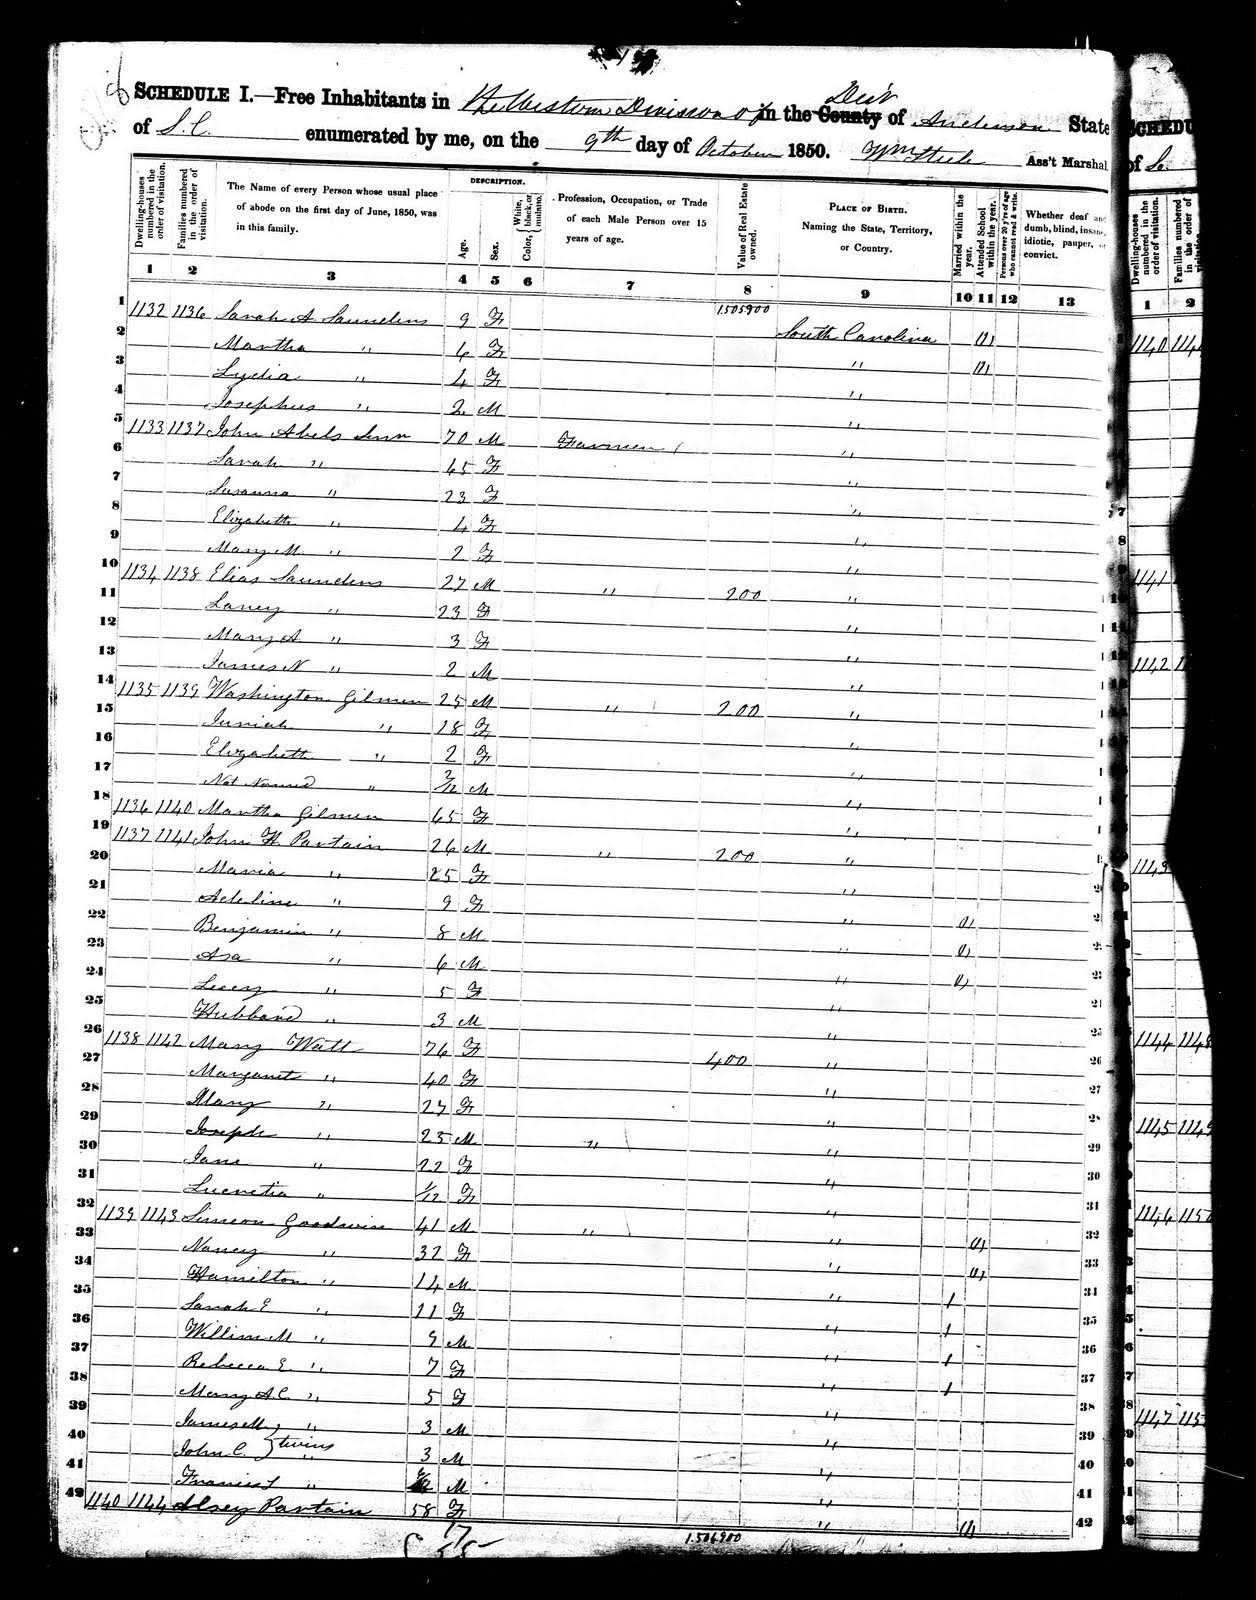 SCHEDULE I.—Free Inhabitants in The Western Division of in the County Dist of Anderson State
of S.C. enumerated by me, on the 9th day of October 1850. Wm Steele Ass't Marshal
Dwelling-houses numbered in the order of visitation.
Families numbered in the order of visitation.
The Name of every Person whose usual place of abode on the first day of June, 1850, was in this family.
DESCRIPTION.
Age.
Sex.
Color, White, black, or mulatto.
Profession, Occupation, or Trade of each Male Person over 15 years of age.
Value of Real Estate owned.
PLACE OF BIRTH. Naming the State, Territory, or Country.
Married within the year.
Attended School within the year.
Persons over 20 y'rs of age who cannot read & write.
Whether deaf and dumb, blind, insane, idiotic, pauper, or convict.
1 2 3 4 5 6 7 8 9 10 11 12 13
1505900
1 1132 1136 Sarah A Saunders 9 F South Carolina 1
2 Martha " 6 F " 1
3 Lydia " 4 F "
4 Josephus " 2 M "
5 1133 1137 John Abels Senr 70 M Farmer "
6 Sarah " 65 F "
7 Susanna " 23 F "
8 Elizabeth " 4 F "
9 Mary M. " 2 F "
10 1134 1138 Elias Saunders 27 M " 200 "
11 Laney " 23 F "
12 Mary A " 3 F "
13 James N " 2 M "
14 1135 1139 Washington Gilmer 25 M " 200 "
15 " 18 F "
16 Elizabeth " 2 F "
17 Not Named " 2/12 M "
18 1136 1140 Martha Gilmer 65 F "
19 1137 1141 John H. Partain 26 M " 200 "
20 Maria " 25 F "
21 Adeline " 9 F " 1
22 Benjamin " 8 M " 1
23 Asa " 6 M " 1
24 Lucy " 5 F "
25 Hubbard " 3 M "
26 1138 1142 Mary Watt 76 F 400 "
27 Margaret " 40 F "
28 Mary " 27 F "
29 Joseph " 25 M " "
30 Jane " 22 F "
31 Lucretia " 1/12 F "
32 1139 1143 Simeon Goodwin 41 M " " 1
33 Nancy " 32 F " 1
34 Hamilton " 14 M " 1
35 Sarah E " 11 F " 1
36 Willim M " 9 M " 1
37 Rebecca E. " 7 F " 1
38 Mary A C. " 5 F
39 James M. " 3 M "
40 John C. } twins " 3 M "
41 Francis L " M "
42 1140 1144 Alsey Partain 58 F " 1
1.506900
SCHEDU
of S.
Dwelling-houses numbered in the order of visitation.
Families numbered in the order of
1 2
1140
1141
1142
1143
1144 1148
1145 1149
1146
1147